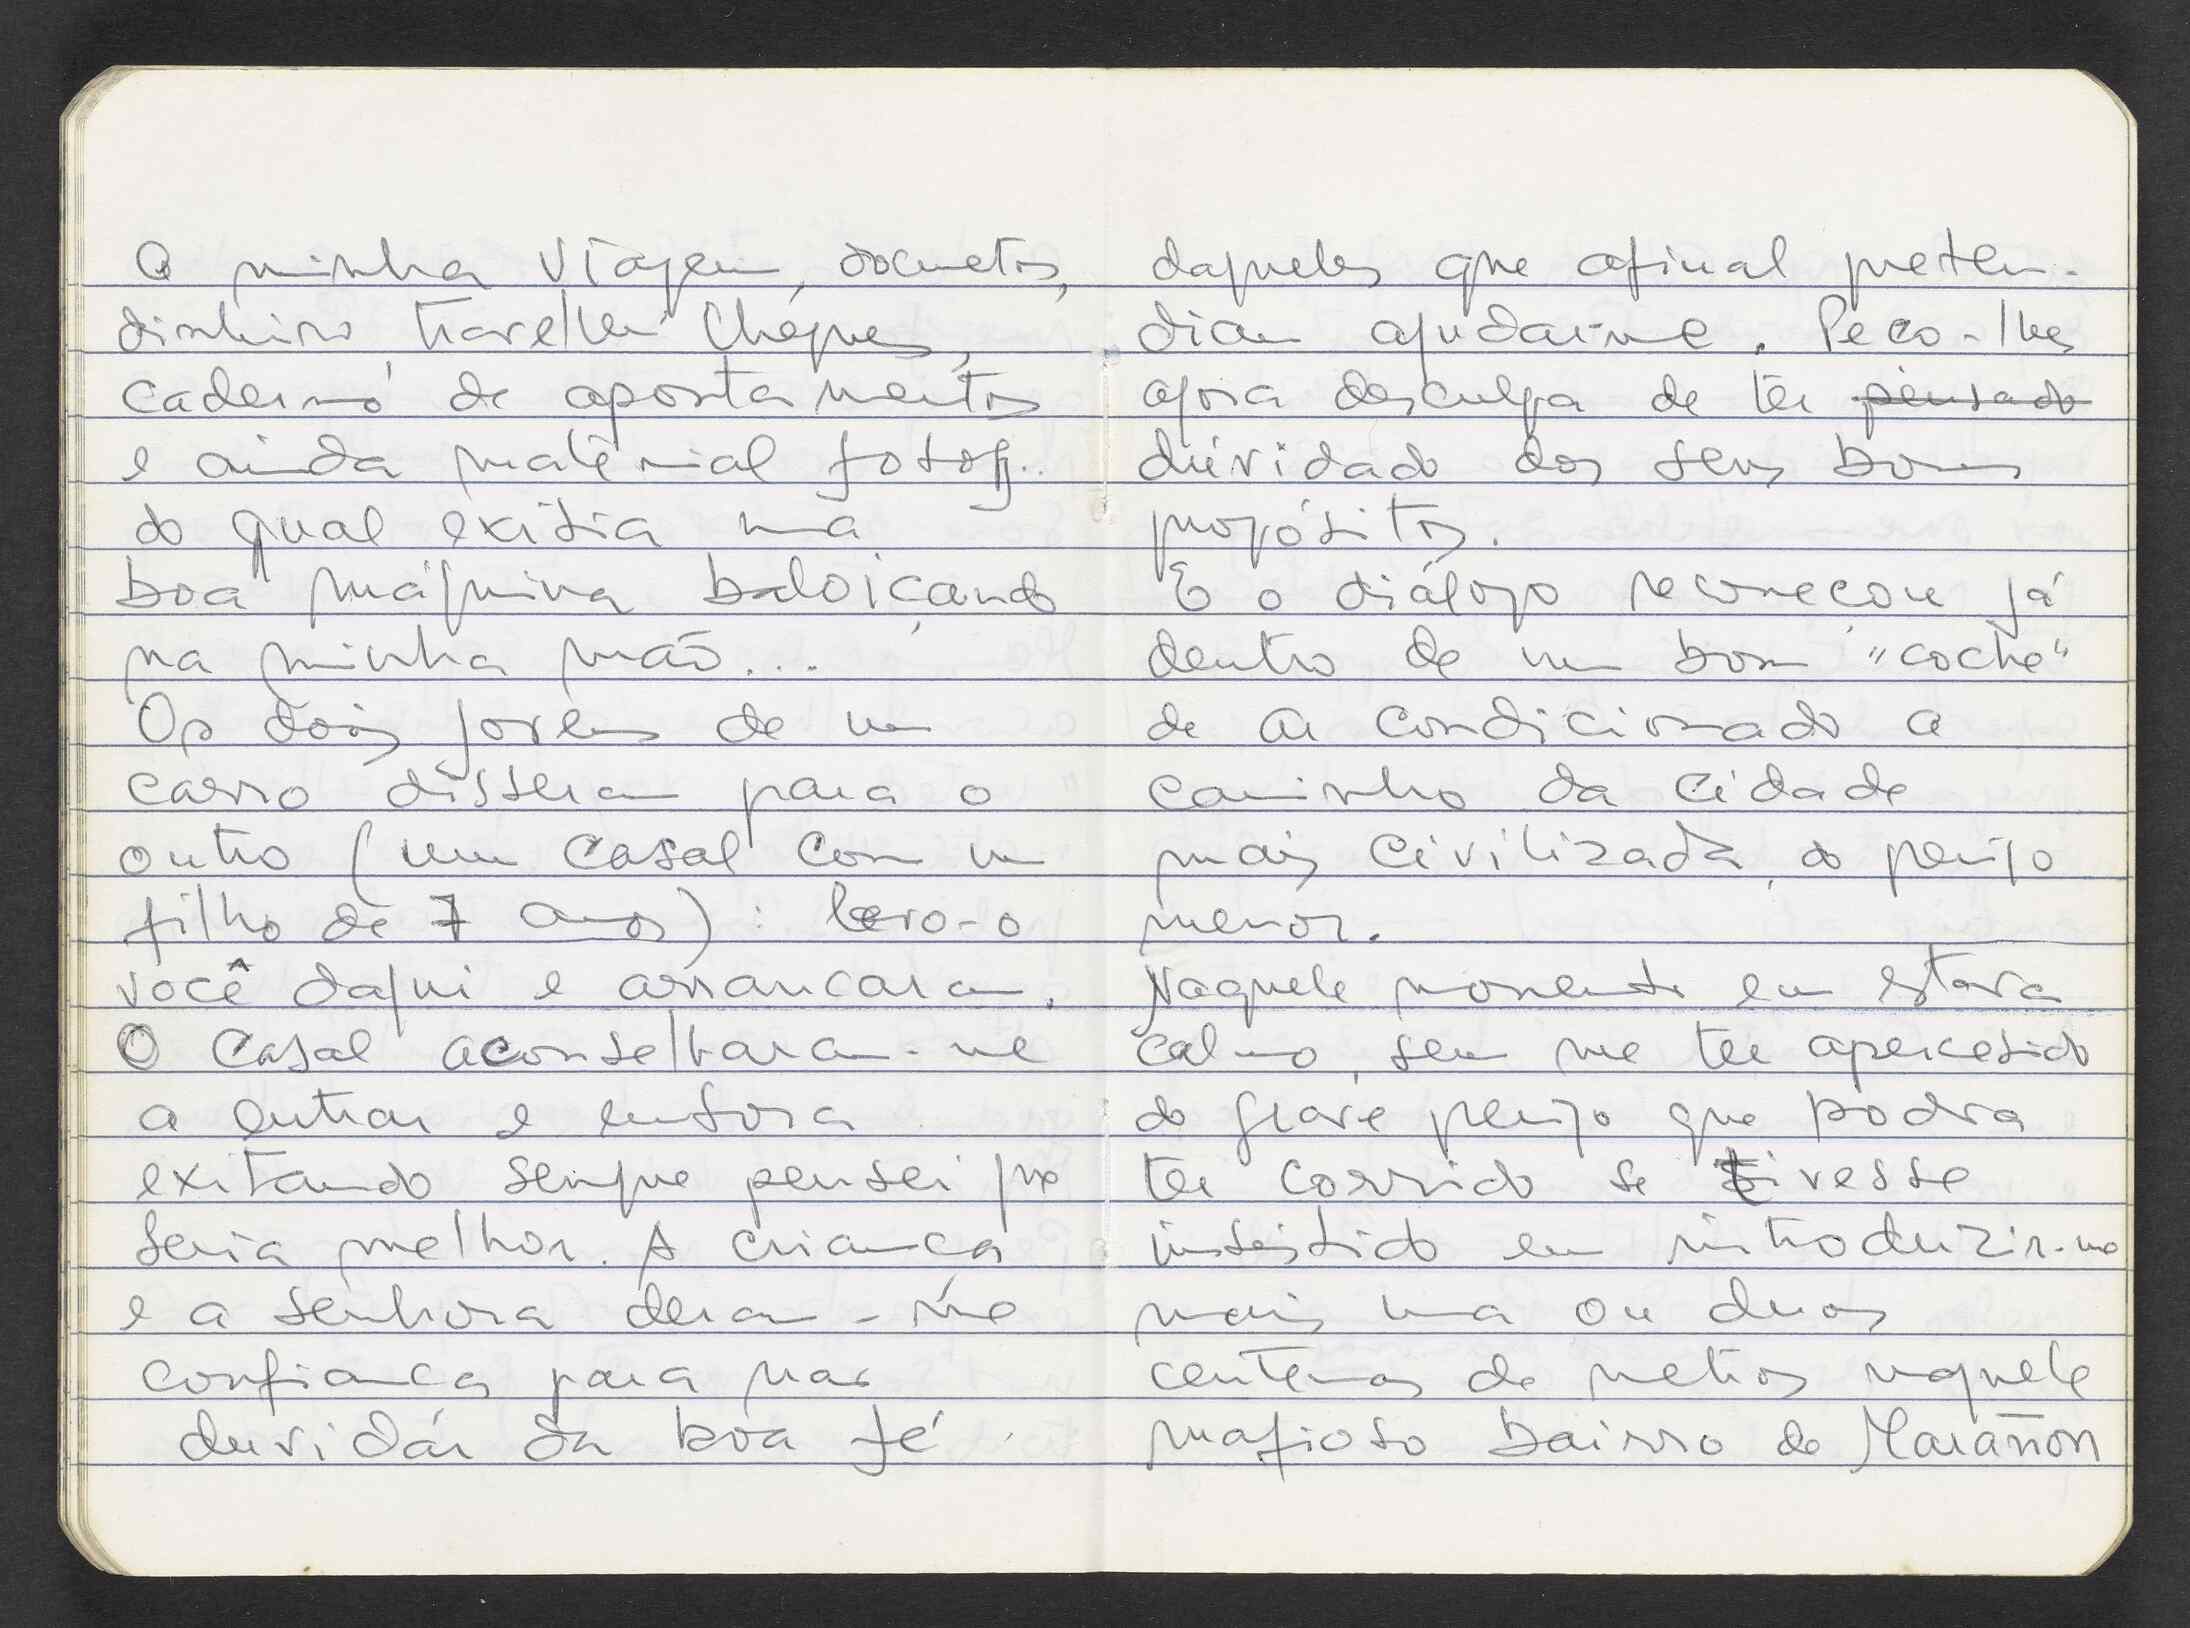 a minha viagem, documetos,
dinheiro, traveller cheques,
caderno de apontamentos
e ainda material fotog..
do qual exitia uma
boa máquina baloiçando
na minha mão...
Os dois jovens de um
carro disseram para o
outro (um casal com um
filho de 7 anos): levo-o
você daqui e arrancaram.
O casal aconselharam-me
a entrar e embora
exitando sempre pensei que
seria melhor. A criança
e a senhora deram-me
confiança para nao
duvidar da boa fé
daqueles que afinal preten-
diam ajudar-me. Peco-lhes
agora desculpa de ter pensado
dúvidado dos seus bons
propósitos.
E o diálogo recomeçou já
dentro de um bom "coche"
de ar condicionado a
caminho da cidade
mais civilizada, do perigo
menor.
Naquele momento eu estava
calmo, sem me ter apercebido
do grave perigo que podia
ter corrido se tivesse
insistido em introduzir-me
mais uma ou duas
centenas de metros naquele
mafioso bairro de Marañon